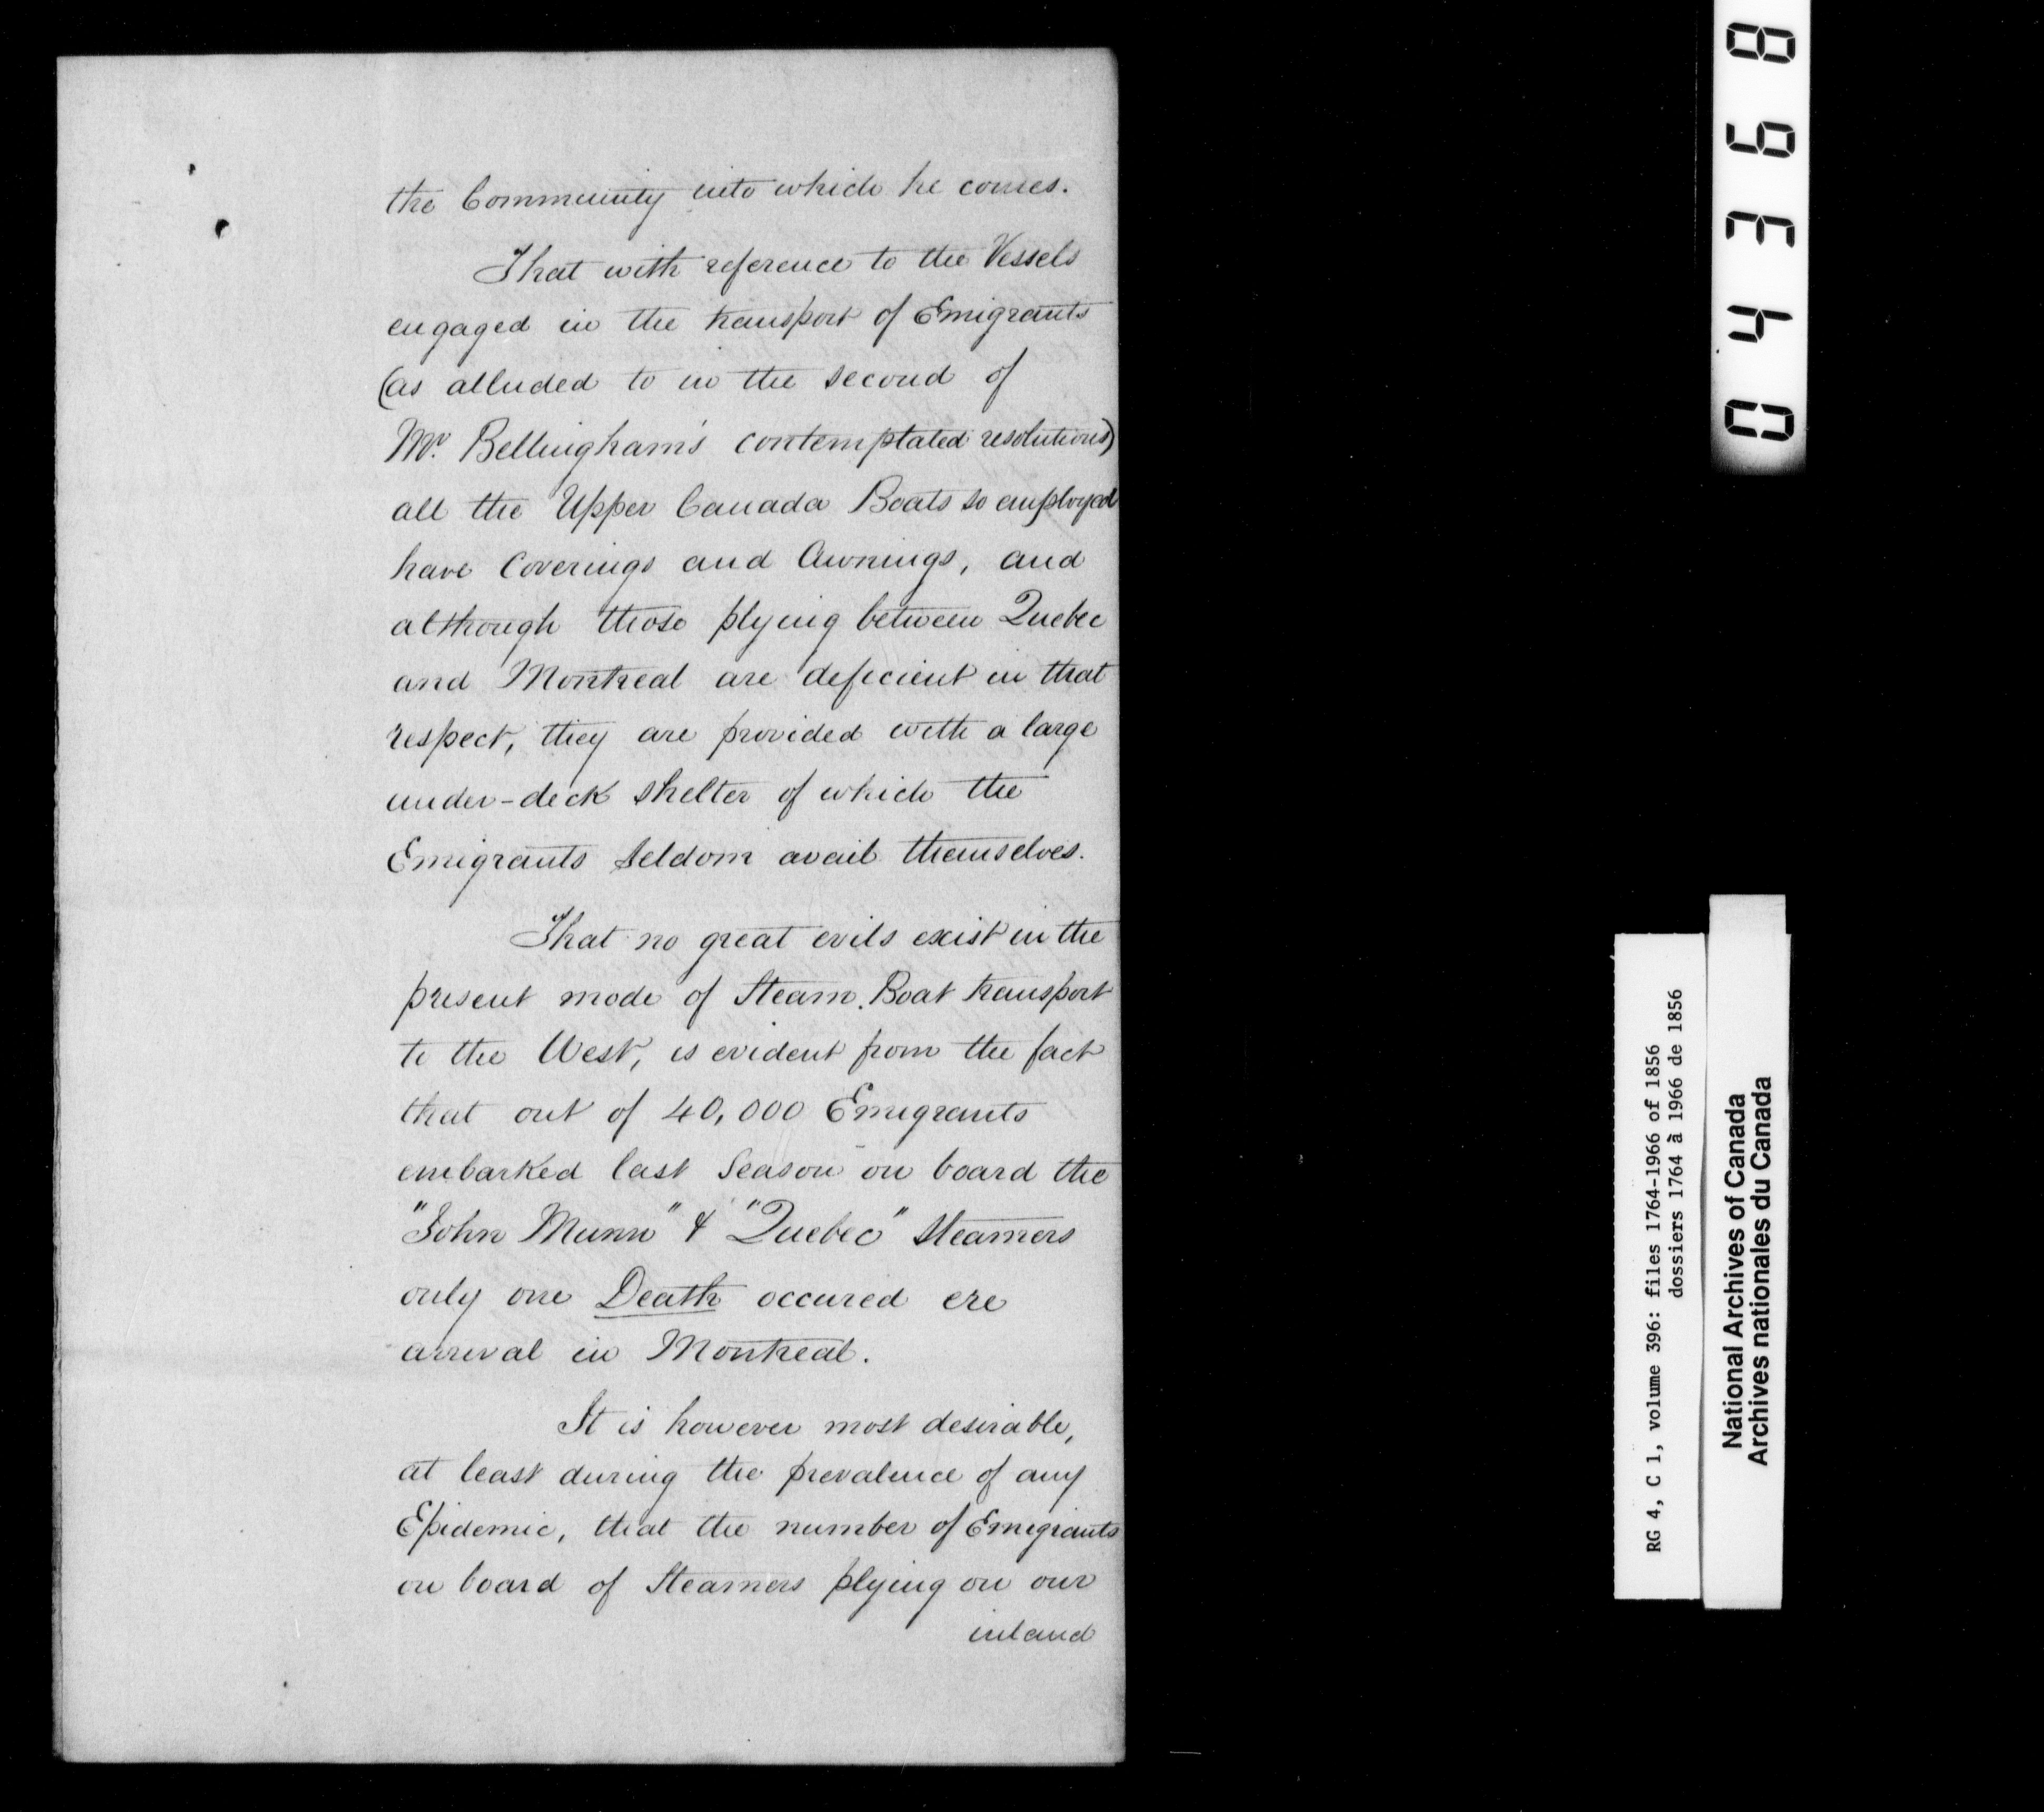 the Community into which he comes.
That with reference to the Vessels
engaged in the transport of Emigrants
(as alluded to in the second of
Mr. Bellingham's contemplated resolutions)
all the Upper Canada Boats so employed
have Coverings and Awnings, and
although those plying between Quebec
and Montreal are deficient in that
respect, they are provided with a large
under-deck shelter of which the
Emigrants seldom avail themselves.
That no great evils exist in the
present mode of Steam. Boat transport
to the West, is evident from the fact
that out of 40,000 Emigrants
embarked last Season on board the
"John Munn" & "Quebec" Steamers
only one Death occured ere
arrival in Montreal.
It is however most desirable,
at least during the prevalence of any
Epidemic, that the number of Emigrants
on board of Steamers plying on our
inland
04368
RG 4, C 1, volume 396: files 1764-1966 of 1856
dossiers 1764 à 1966 de 1856
National Archives of Canada
Archives nationales du Canada